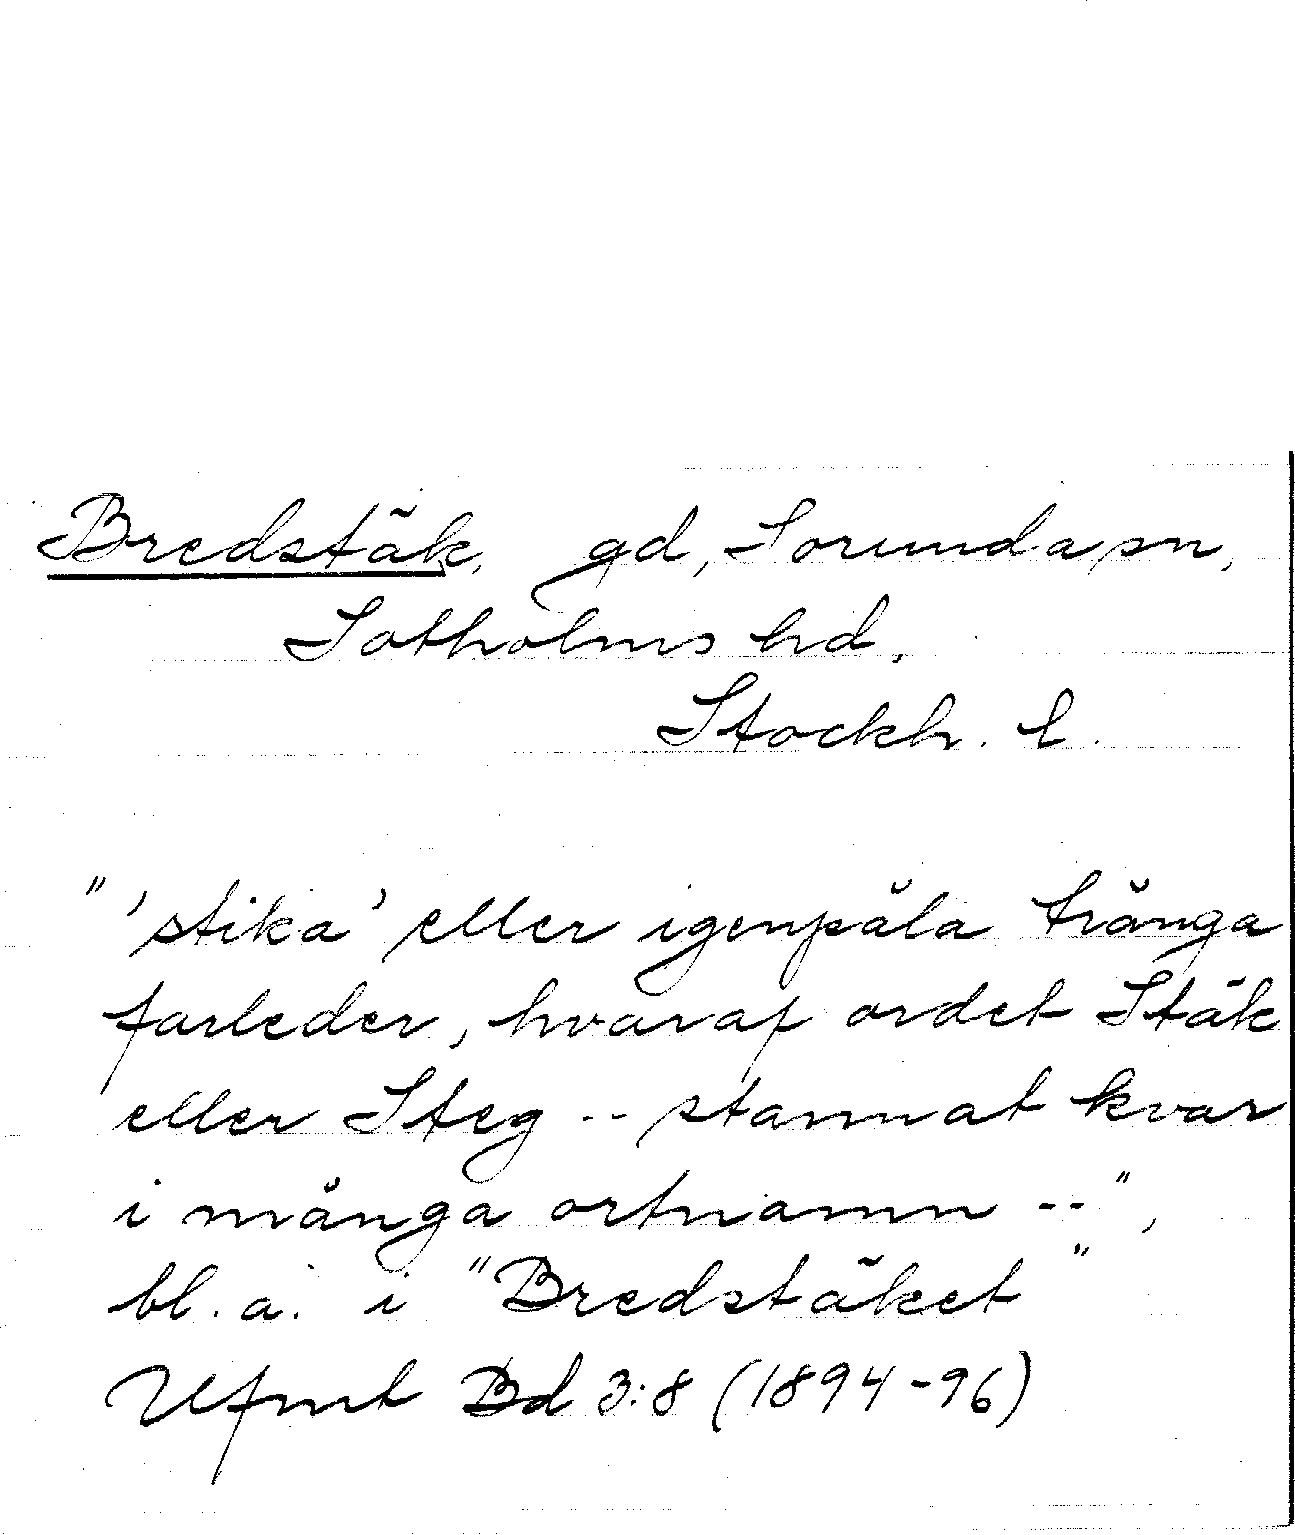 Bredstäk, gd, Sorunda sn,
Sotholms hd,
Stockh. l.
"'stika' eller igenpåla trånga
farleder, hvaraf ordet Stäk
eller Steg -- stannat kvar
i många ortnamn --",
bl. a. i "Bredstäket"
Ufmt Bd 3:8 (1894-96)